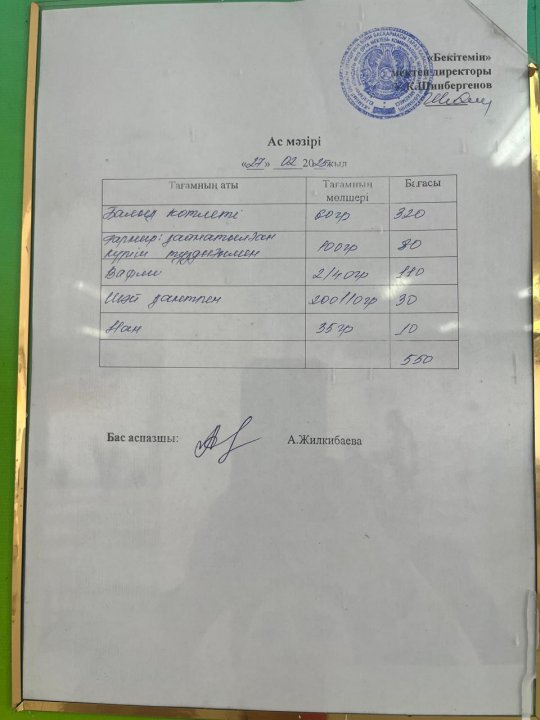 «Бекітемін»
мектеп директоры
К.Шинбергенов
Ас мәзірі
«27» 02 2025 жыл
Тағамның аты Тағамның мөлшері Бағасы
Балық котлеті 60гр 320
гарнир: қайнатылған күріш тұздығымен 100гр 80
Вафли 2/40гр 110
Шәй қантпен 200/10гр 30
Нан 35гр 10
550
Бас аспазшы: А.Жилкибаева